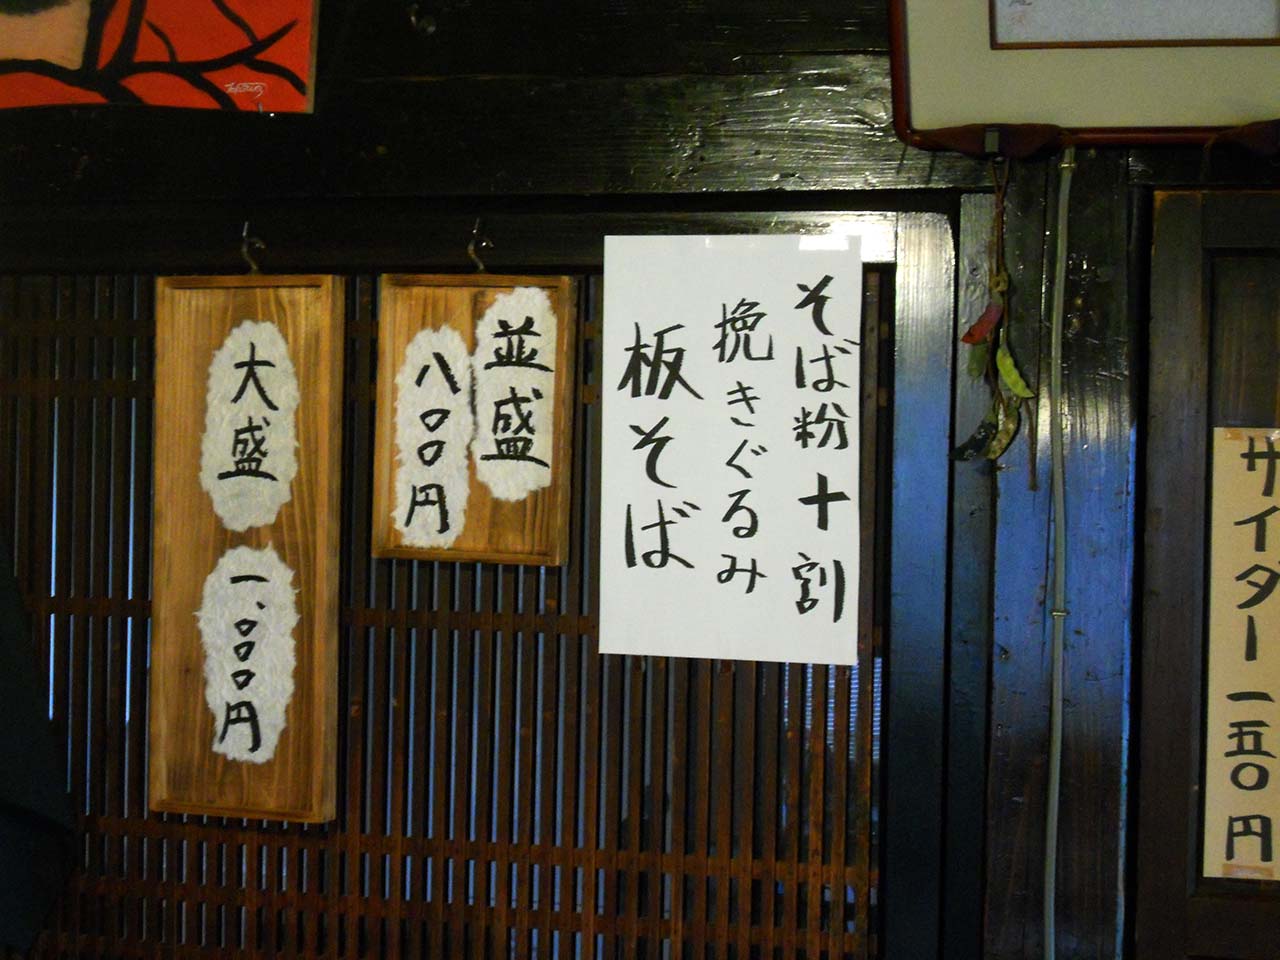 そば粉十割
挽きぐるみ
板そば
並盛
八〇〇円
大盛
一、〇〇〇円
サイダー 一五〇円